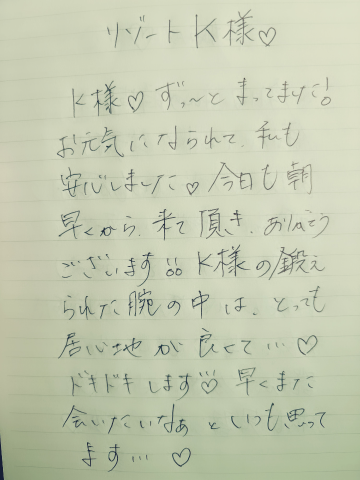 リゾートK様♡
K様♡ずっ〜とまってました!
お元気になられて、私も
安心しました♡今日も朝
早くから、来て頂き、ありがとう
ございます!!K様の鍛え
られた腕の中は、とっても
居心地が良くて…♡
ドキドキします♡早くまた
会いたいなぁといつも思って
ます…♡